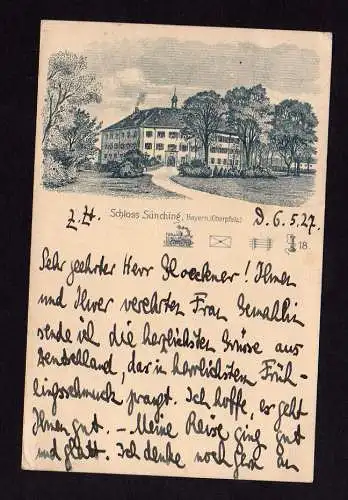 Schloss Sünching, Bayern (Oberpfalz)
z. Zt. D. 6. 5. 27.
18
Sehr geehrter Herr Kloeckner! Ihnen
und Ihrer verehrten Frau Gemahlin
sende ich die herzlichsten Grüsse aus
Deutschland, das in herrlichstem Früh-
lingsschmuck prangt. Ich hoffe, es geht
Ihnen gut. – Meine Reise ging gut
und glatt. Ich denke noch gern an